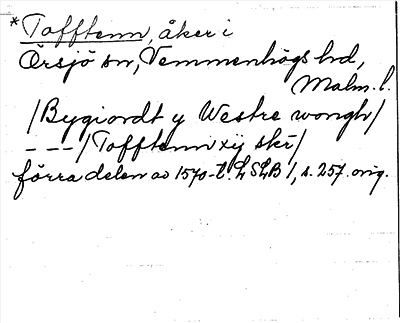 *Tofftenn, åker i
Örsjö sn, Vemmenhögs hd,
Malm. l.
/Bygiordt y Westre wongh/
- - - /Tofftenn xij skr/
förra delen av 1570-t. LSLB 1, s. 257. orig.